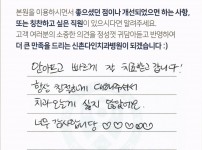 본원을 이용하시면서 좋으셨던 점이나 개선되었으면 하는 사항,
또는 칭찬하고 싶은 직원이 있으시다면 알려주세요.
고객 여러분의 소중한 의견을 정성껏 귀담아듣고 반영하여
더 큰 만족을 드리는 신촌다인치과병원이 되겠습니다 :)
안아프고 빠르게 잘 치료받고 갑니다!
항상 친절하게 대해주셔서
치과 오는게 싫지 않았어요.
너무 감사합니다 ♡♡♡♡♡